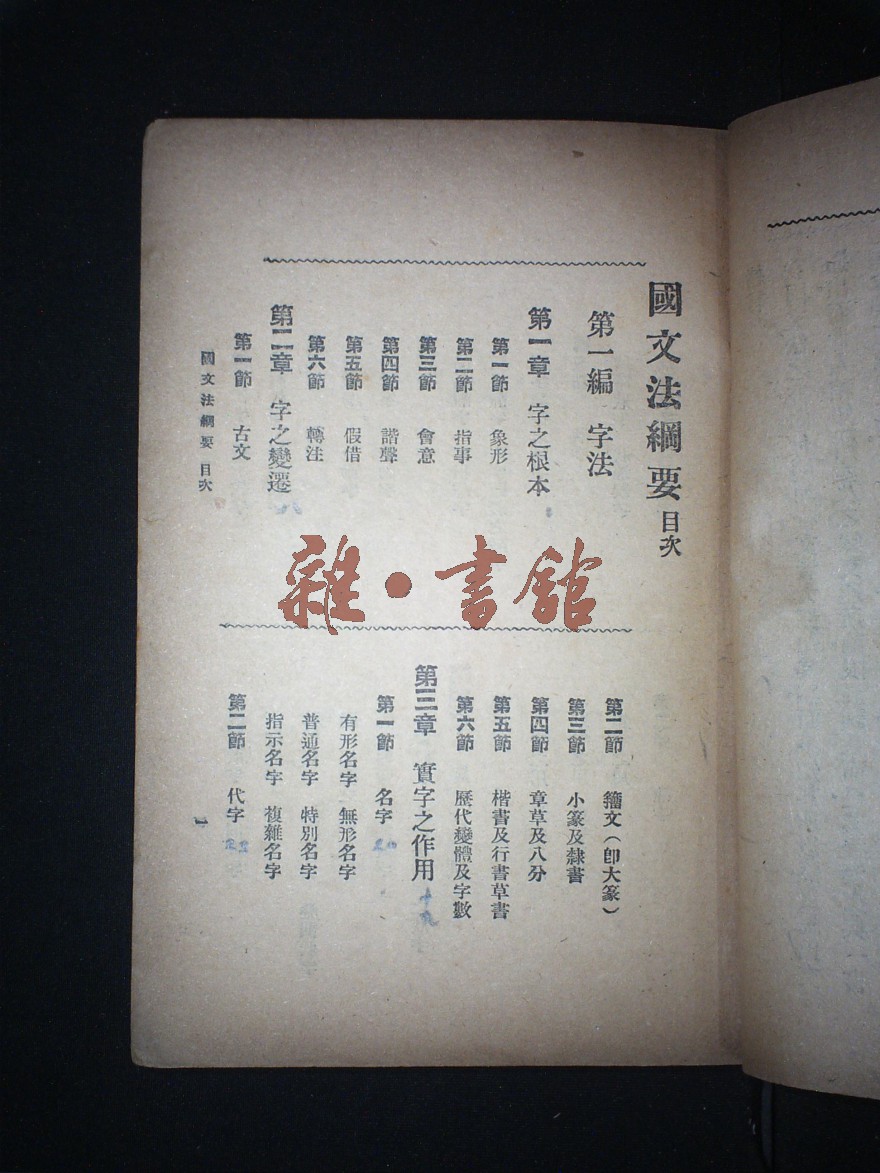 國文法綱要 目次
第一編 字法
第一章 字之根本
第一節 象形
第二節 指事
第三節 會意
第四節 諧聲
第五節 假借
第六節 轉注
第二章 字之變遷
第一節 古文
國文法綱要 目次
第二節 籀文(卽大篆)
第三節 小篆及隸書
第四節 章草及八分
第五節 楷書及行書草書
第六節 歷代變體及字數
第三章 實字之作用 十九
第一節 名字
有形名字 無形名字
普通名字 特別名字
指示名字 複雜名字
第二節 代字
一
雜·書館